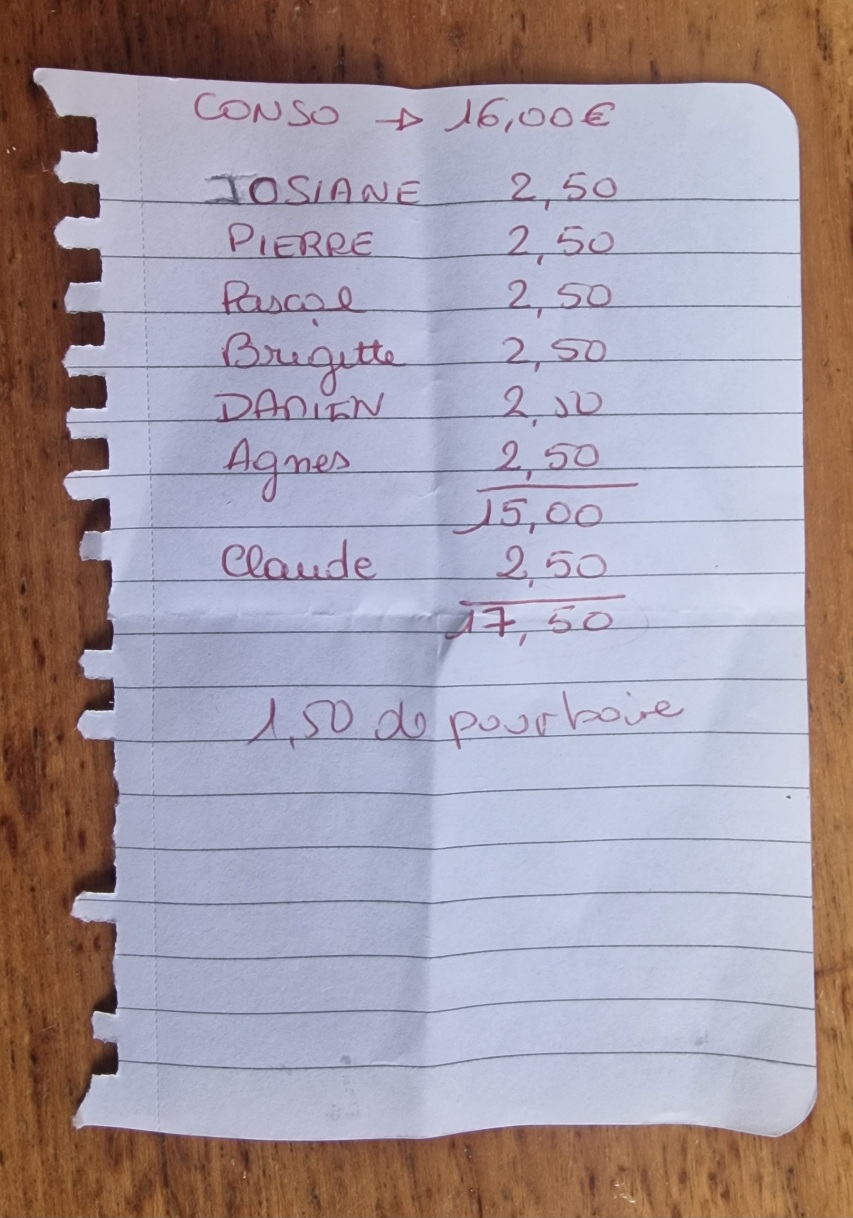 CONSO → 16,00€
JOSIANE 2,50
PIERRE 2,50
Pascale 2,50
Brigitte 2,50
DAMIEN 2,50
Agnes 2,50
15,00
Claude 2,50
17,50
1,50 de pourboire